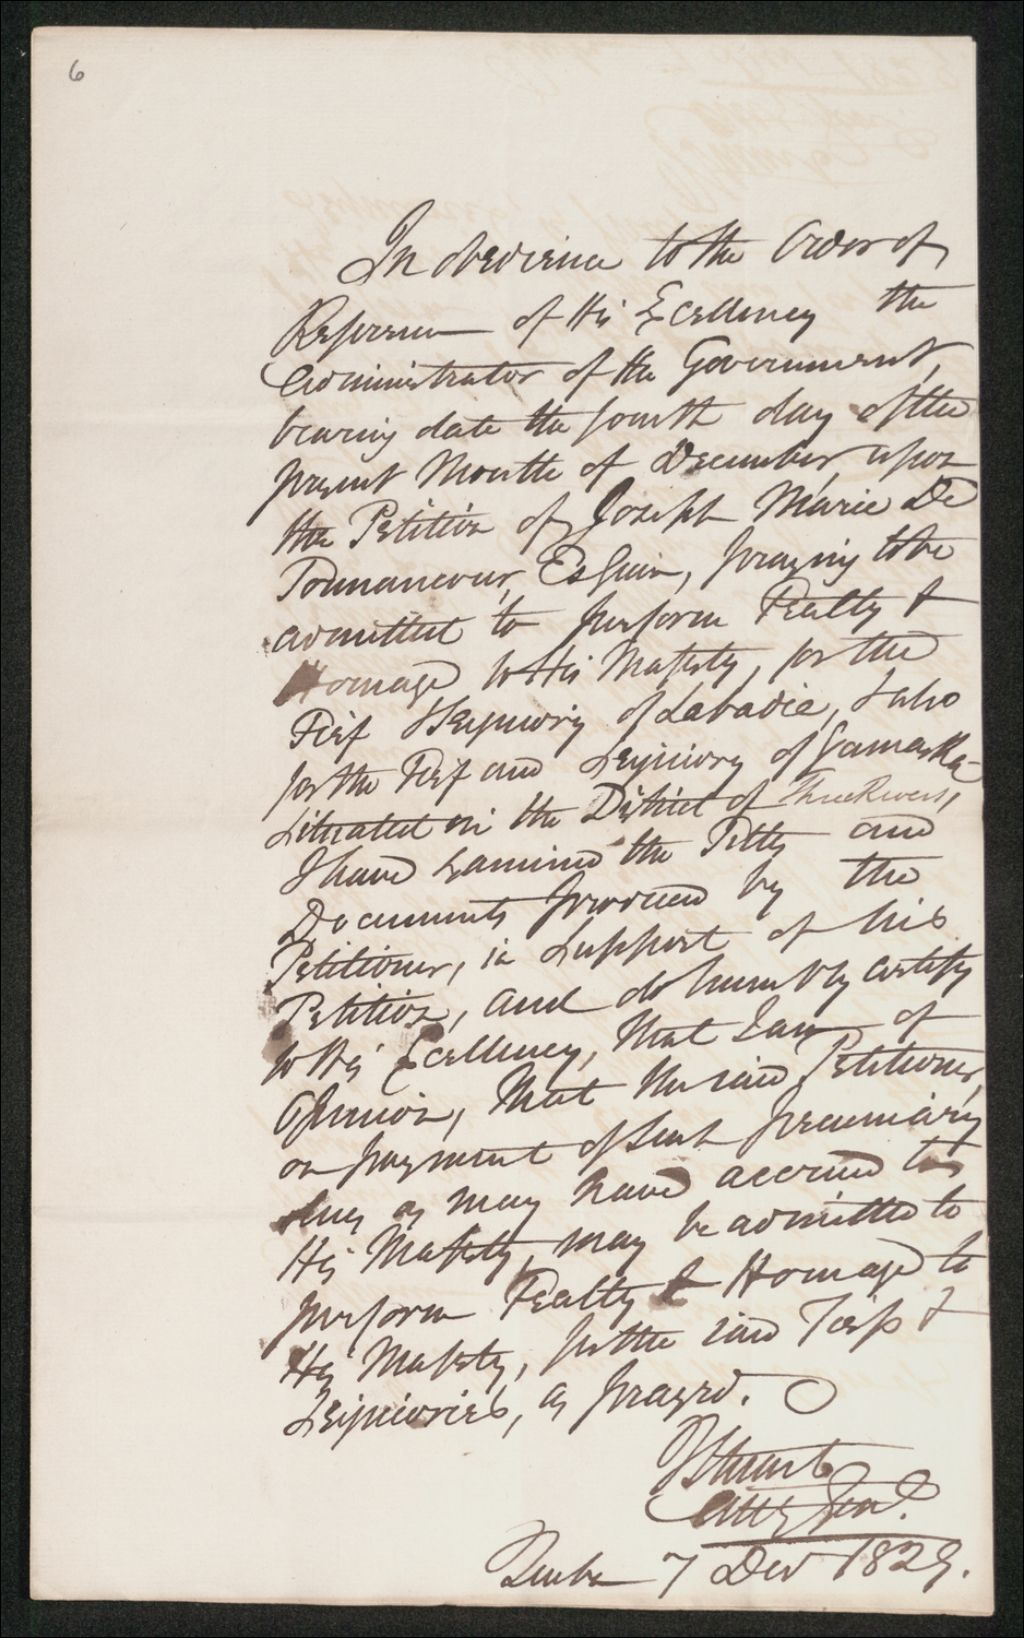 6
In obedience to the Order of
Reference of His Excellency the
Administrator of the Government,
bearing date the fourth day of the
present Month of December, upon
the Petition of Joseph Marie De
Tonnancour, Esquire, praying to be
admitted to perform Fealty &
Homage to His Majesty, for the
Fief & Seigniory of Labadie, & also
for the Fief and Seigniory of Yamaska
situated in the District of Three Rivers,
I have examined the Titles and
Documents produced by the
Petitioner, in support of his
Petition, and do humbly certify
to His Excellency, that I am of
Opinion, that the said Petitioner,
on payment of such pecuniary
dues as may have accrued to
His Majesty, may be admitted to
perform Fealty & Homage to
His Majesty, for the said Fiefs &
Seigniories, as prayed.
J Stuart
Atty Genl.
Quebec 7 Decr 1829.